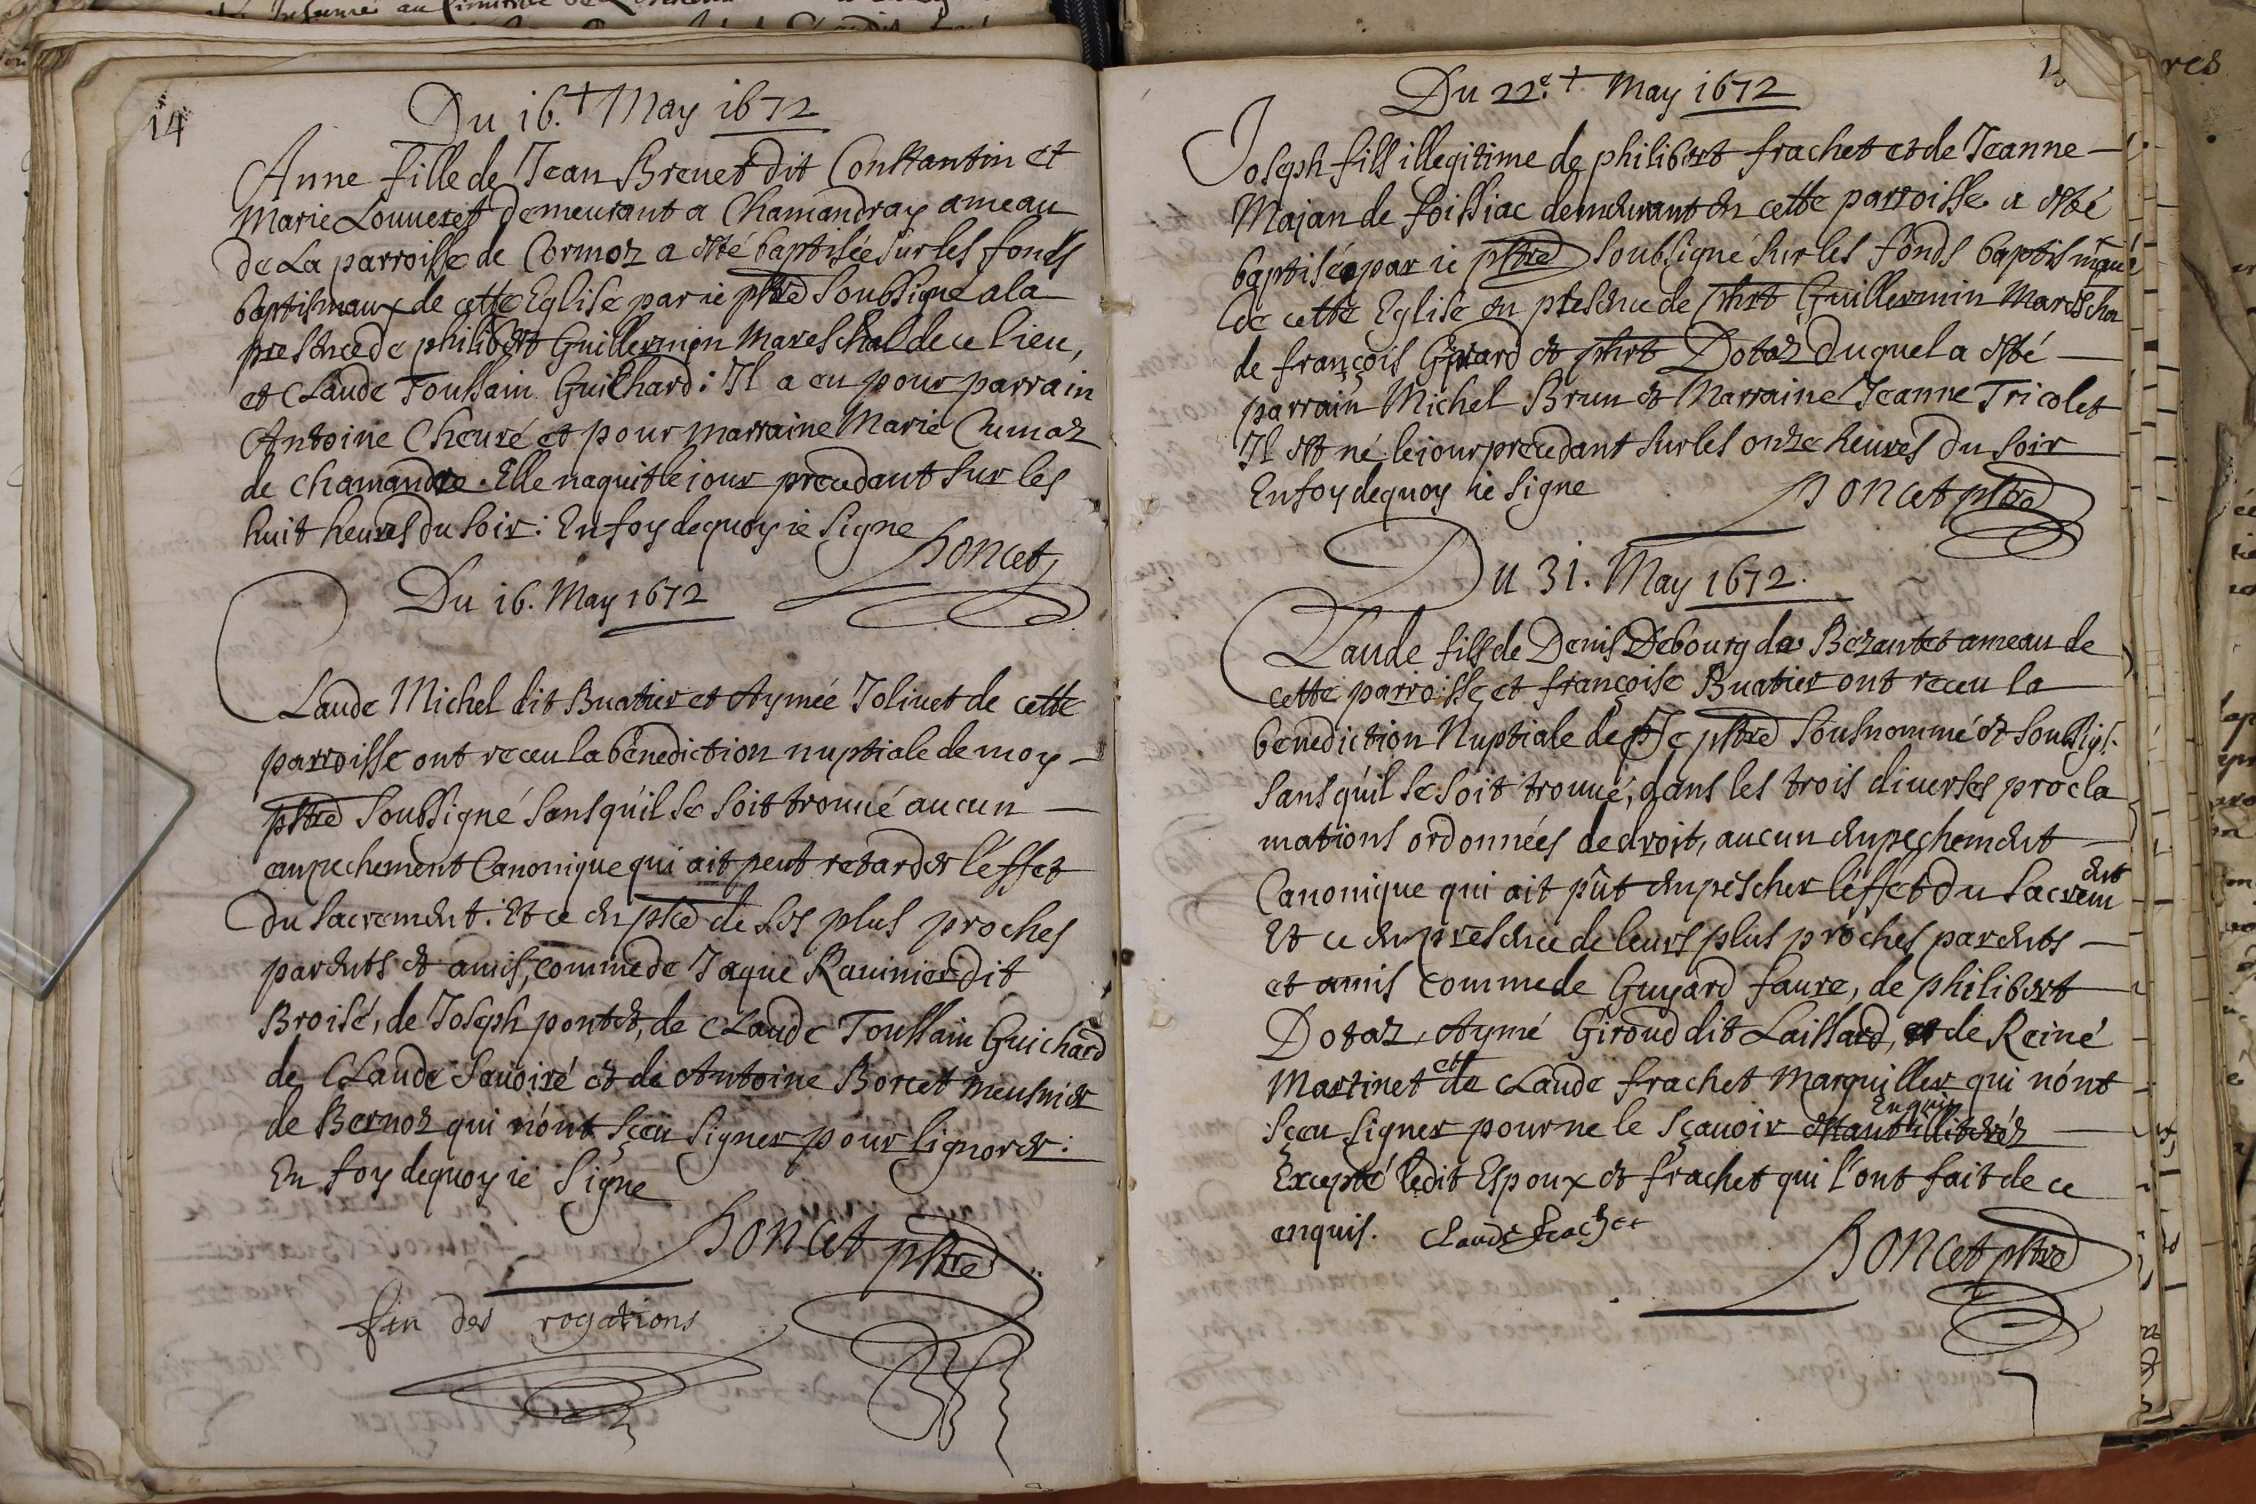 14
Du 16. + May 1672
Anne fille de Jean Brevet dit Constantin et
Marie Louveret demeurant a Chamandray ameau
de La parroisse de Cormoz a esté baptisée sur les fonds
baptismaux de cette Eglise par ie pstre soubsigné a la
presence de philibert Guillermin Mareschal de ce lieu,
et Claude Toussain Guichard : Il a eu pour parrain
Antoine Cheuré et pour marraine Marie Cumoz
de Chamandre. Elle naquit le iour precedant sur les
huit heures du soir : En foy dequoy ie signe
Boncet
Du 16. May 1672
Claude Michel dit Buatier et Aymée Joliuet de cette
parroisse ont receu la benediction nuptiale de moy
pstre soubsigné sans qu'il se soit trouué aucun
empechement Canonique qui ait peut retarder l'effet
du sacrement : Et ce en pnce de ses plus proches
parents et amis, comme de Jaque Rauinier dit
Broisé, de Joseph pontet, de Claude Toussain Guichard
de Claude Sauoiré et de Antoine Borcet meusnier
de Bernoz qui n'ont sçeu signer pour l'ignorer :
En foy dequoy ie signe
Boncet pstre
fin des rogations
Du 22e. + May 1672
Joseph fils illegitime de philibert frachet et de Jeanne
Majan de foissiac demeurant en cette parroisse a esté
baptisé par ie pstre soubsigné sur les fonds baptismaux
de cette Eglise en presence de phrt Guillermin Marescha
de françois Girard et phrt Dotaz duquel a esté
parrain Michel Brun et Marraine Jeanne Tricolet
Il est né le iour precedant sur les onze heures du soir
En foy dequoy ie signe Boncet pstre
Du 31. May 1672.
Claude fils de Denis Debourg de Bezentet ameau de
cette parroisse et françoise Buatier ont receu la
benediction Nuptiale de Je pstre sousnommé et soubsigé.
sans qu'il se soit trouué, dans les trois diverses procla
mations ordonnées de droit, aucun empechement
Canonique qui ait pût empescher l'effet du sacrement
Et ce en presence de leurs plus proches parents
et amis comme de Guyard faure, de philibert
Dotaz, Aymé Giroud dit Laissard, et de Reiné
Martinet et de Claude frachet Marguiller qui n'ont
sçeu signer pour ne le sçauoir Enquis
Excepté ledit Espoux et frachet qui l'ont fait de ce
enquis. Claude frachet
Boncet pstre